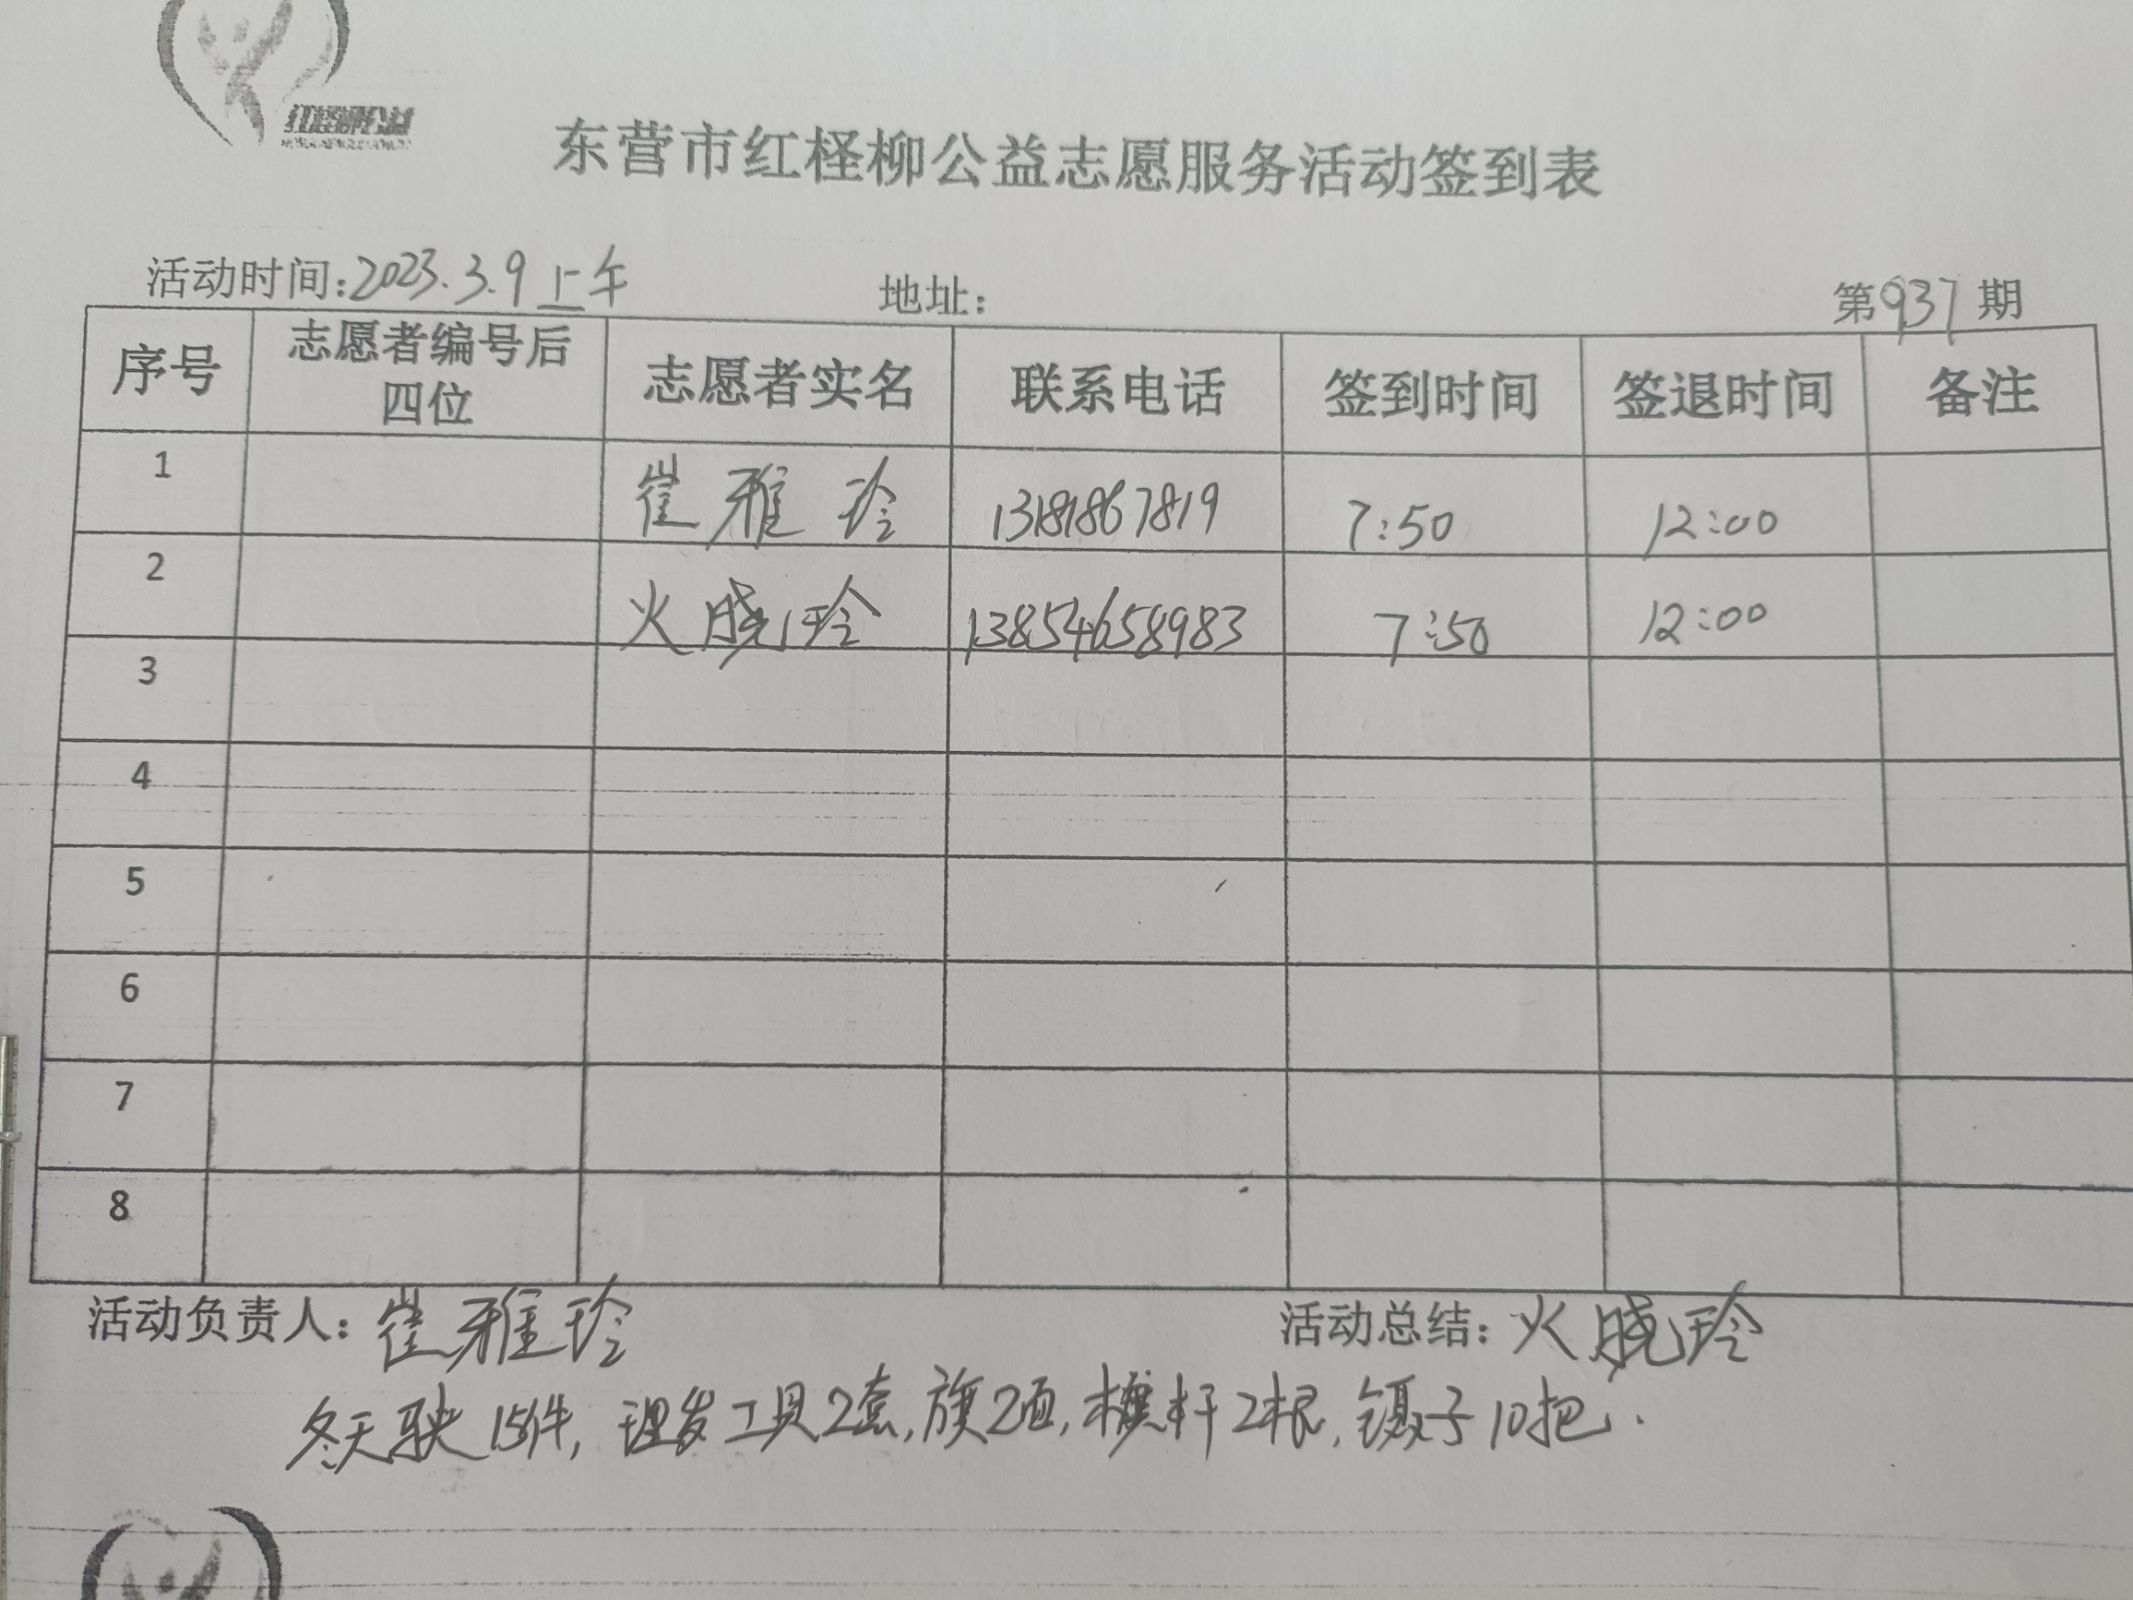 红柽柳公益
东营市红柽柳公益志愿服务活动签到表
活动时间:2023.3.9上午 地址: 第937期
序号 志愿者编号后四位 志愿者实名 联系电话 签到时间 签退时间 备注
1 崔雅玲 13181867819 7:50 12:00
2 火晓玲 13854658983 7:50 12:00
3
4
5
6
7
8
活动负责人: 崔雅玲 活动总结: 火晓玲
冬天袄15件, 理发工具2套, 旗2面, 横杆2根, 镊子10把.